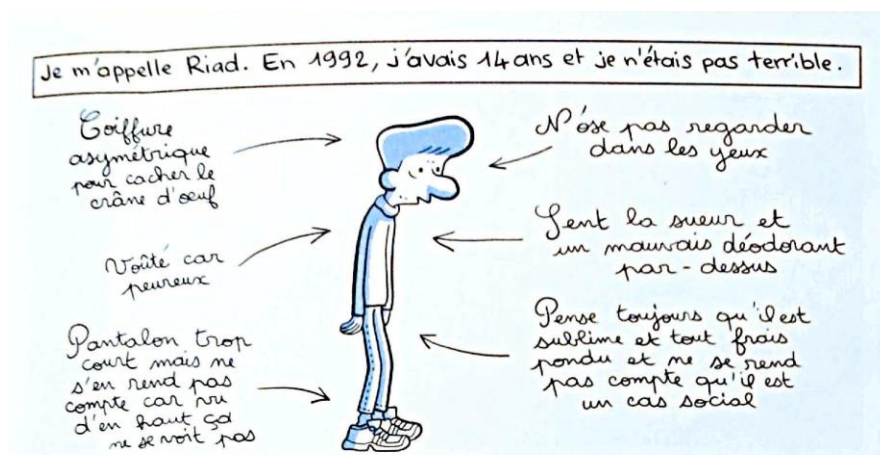 Je m'appelle Riad. En 1992, j'avais 14 ans et je n'étais pas terrible.
Coiffure
asymétrique
pour cacher le
crâne d'œuf
Voûté car
peureux
Pantalon trop
court mais ne
s'en rend pas
compte car vu
d'en haut ça
ne se voit pas
N'ose pas regarder
dans les yeux
Sent la sueur et
un mauvais déodorant
par-dessus
Pense toujours qu'il est
sublime et tout frais
pondu et ne se rend
pas compte qu'il est
un cas social